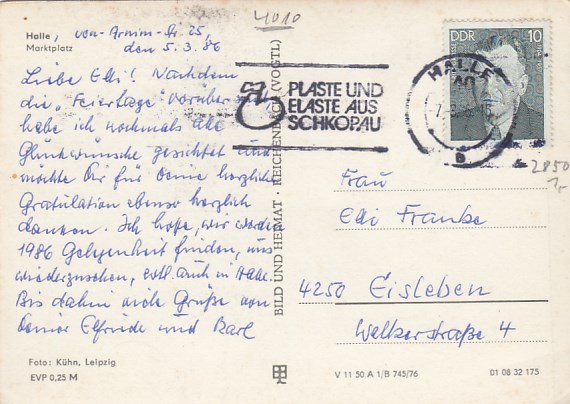 4010
Halle, von-Arnim-Str. 25,
Marktplatz den 5.3.86
Liebe Edi! Nachdem
die „Feiertage" vorüber sind,
habe ich nochmals alle
Glückwünsche gesichtet und
möchte Dir für Deine herzliche
Gratulation ebenso herzlich
danken. Ich hoffe, wir werden
1986 Gelegenheit finden, uns
wiederzusehen, evtl. auch in Halle.
Bis dahin viele Grüße von
Deiner Elfriede und Karl
Foto: Kühn, Leipzig
EVP 0,25 M
BILD UND HEIMAT · REICHENBACH (VOGTL)
PLASTE UND
ELASTE AUS
SCHKOPAU
HALLE
DDR 10
2850
1,-
Frau
Edi Franke
4250 Eisleben
Welkerstraße 4
V 11 50 A 1/B 745/76 01 08 32 175